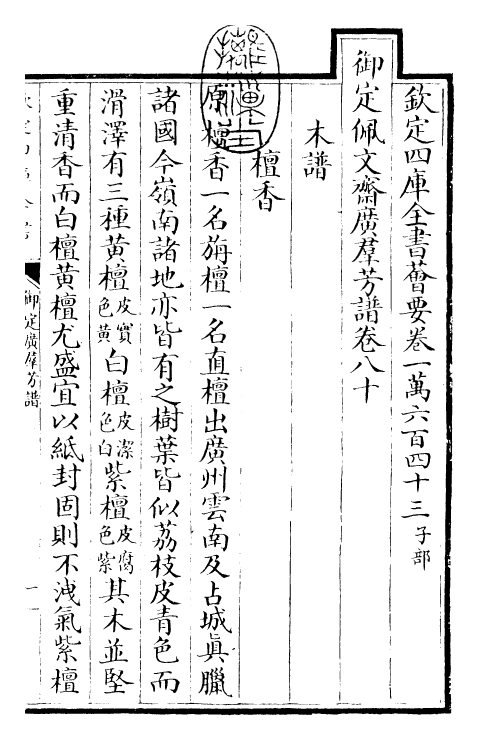 欽定四庫全書薈要卷一萬六百四十三 子部
御定佩文齋廣羣芳譜卷八十
木譜
檀香
原檀香一名旃檀一名真檀出廣州雲南及占城眞臘
諸國今嶺南諸地亦皆有之樹葉皆似荔枝皮青色而
滑澤有三種黃檀皮實色黃白檀皮潔色白紫檀皮腐色紫其木並堅
重清香而白檀黃檀尤盛宜以紙封固則不洩氣紫檀
御定廣羣芳譜
一